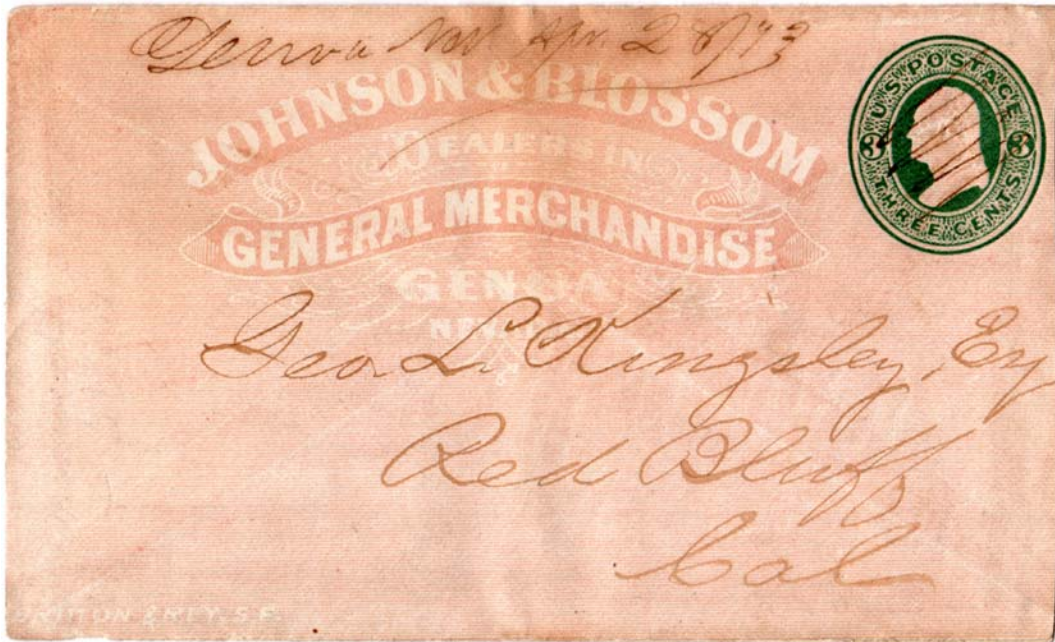 Genoa Nev Apr. 2 1873
JOHNSON & BLOSSOM
DEALERS IN
GENERAL MERCHANDISE
GENOA
NEVADA
U.S. POSTAGE
3 3
THREE CENTS
Geo. L. Kingsley, Esq
Red Bluff
Cal
BRITTON & REY. S.F.